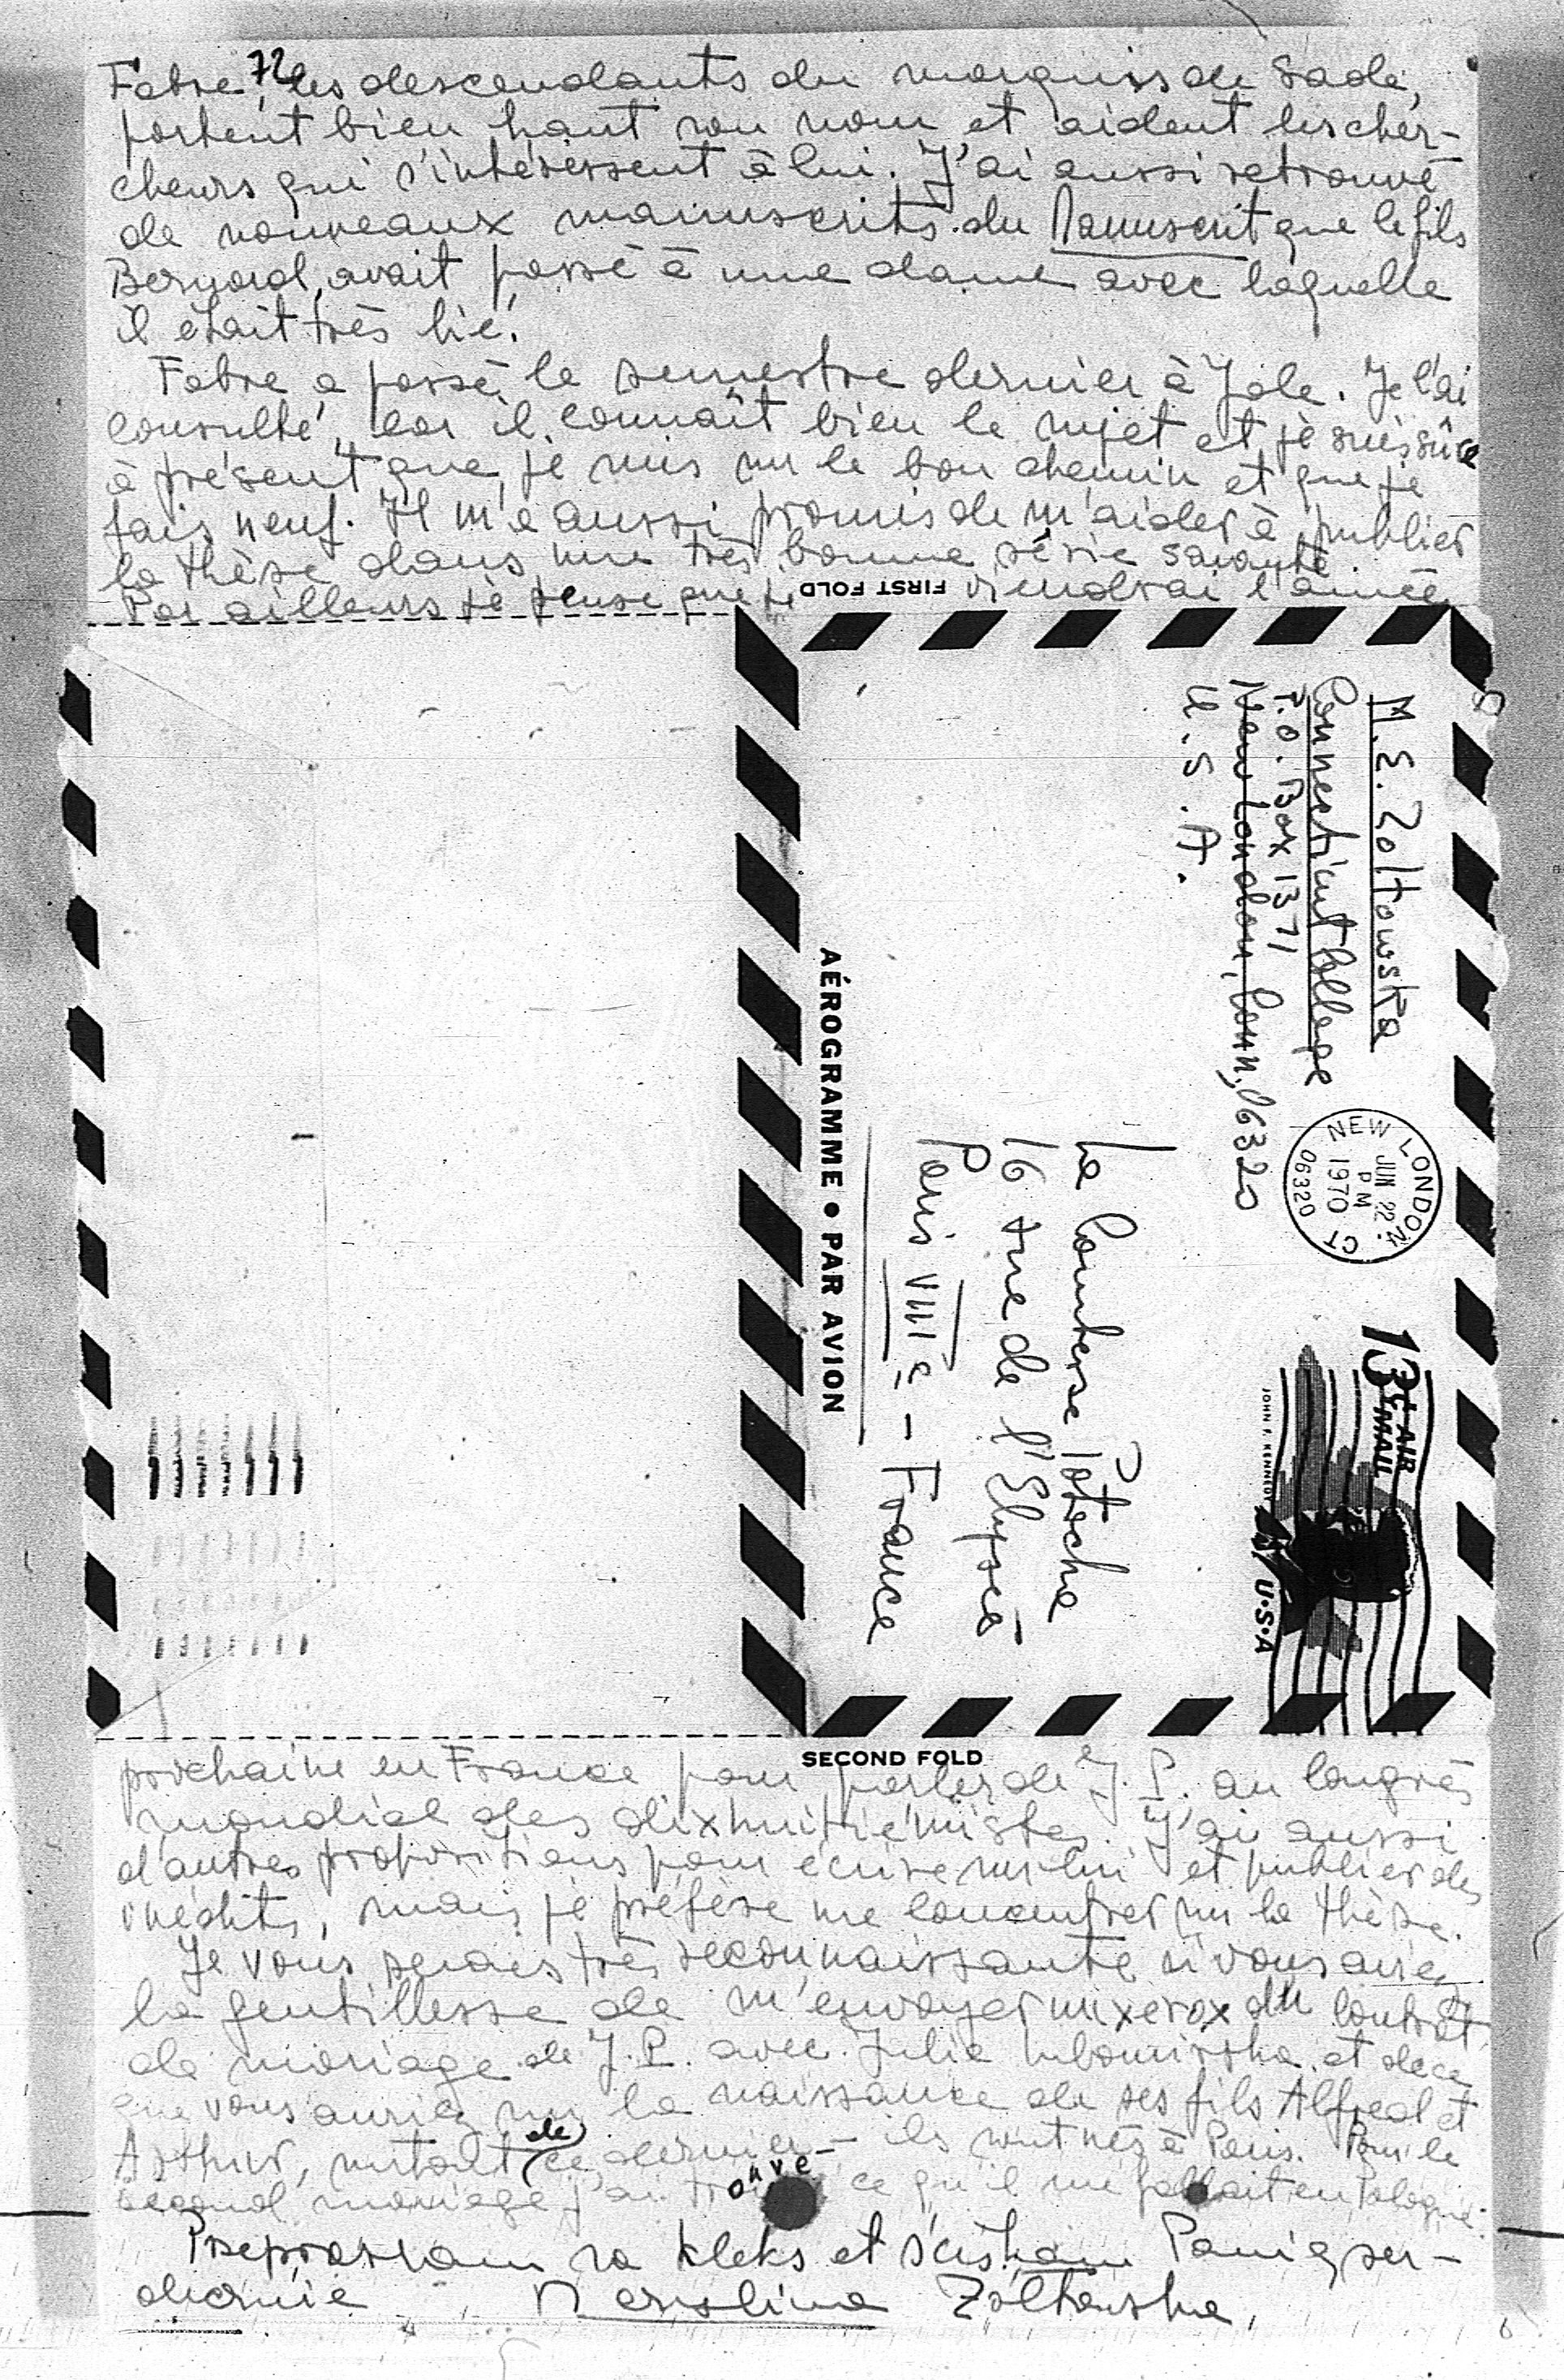 72
Fabre, les descendants du marquis de Sade,
portent bien haut son nom et aident les cher-
cheurs qui s'intéressent à lui. J'ai aussi retrouvé
de nouveaux manuscrits du Manuscrit que le fils
Bernard, avait passé à une dame avec laquelle
il était très lié.
Fabre a passé le semestre dernier à Yale. Je l'ai
consulté, car il connaît bien le sujet et je suis sûre
à présent que je suis sur le bon chemin et que je
fais neuf. Il m'a aussi promis de m'aider à publier
la thèse dans une très bonne série savante.
Par ailleurs je pense que je viendrai l'année
FIRST FOLD
M. E. Zoltowska
Connecticut College
P.O. Box 1371
New London, Conn, 06320
U.S.A.
NEW LONDON, CT
JUN 22
PM
1970
06320
13¢ AIR MAIL
JOHN F. KENNEDY
U·S·A
La Comtesse Potocka
16 rue de l'Elysée
Paris VIIIe - France
AÉROGRAMME • PAR AVION
SECOND FOLD
prochaine en France pour parler de J. P. au Congrès
mondial des dixhuitiémistes. J'ai aussi
d'autres propositions pour écrire sur lui et publier des
inédits, mais je préfère me concentrer sur la thèse.
Je vous serais très reconnaissante si vous aviez
la gentillesse de m'envoyer un xerox du contrat
de mariage de J. P. avec Julie Lubomirska et de ce
que vous auriez sur la naissance de ses fils Alfred et
Arthur, surtout de ce dernier - ils sont nés à Paris. Pour le
second mariage j'ai trouvé ce qu'il me fallait en Pologne.
Przepraszam za kleks et ściskam Panią ser-
decznie Maryslina Zoltowska